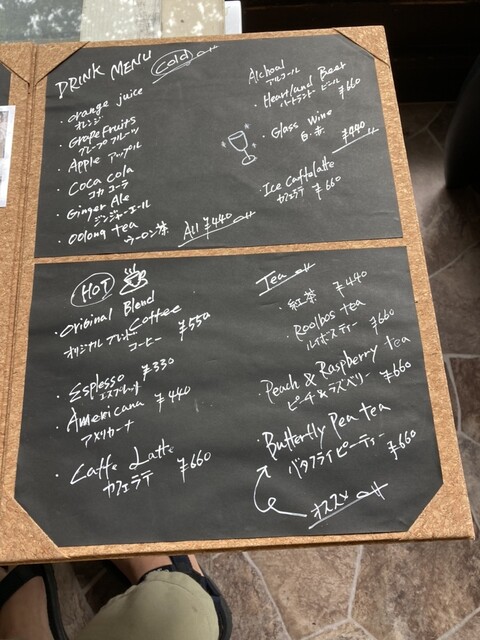 DRINK MENU Cold
・orange juice
オレンジ
・GrapeFruits
グレープフルーツ
・Apple アップル
・Coca cola
コカコーラ
・Ginger Ale
ジンジャーエール
・oolong tea
ウーロン茶
All ¥440
Alchoal
アルコール
・Heartland Beer
ハートランドビール ¥660
・Glass wine
白・赤
¥440
・Ice Caffelatte
カフェラテ ¥660
HOT
・Original Blend Coffee
オリジナルブレンド コーヒー ¥550
・Esplesso ¥330
エスプレッソ
・Americana ¥440
アメリカーナ
・Caffe Latte
カフェラテ ¥660
Tea
・紅茶 ¥440
・Rooibos tea
ルイボスティー ¥660
・Peach & Raspberry tea
ピーチ&ラズベリー ¥660
・Butterfly Pea tea
バタフライピーティー ¥660
オススメ